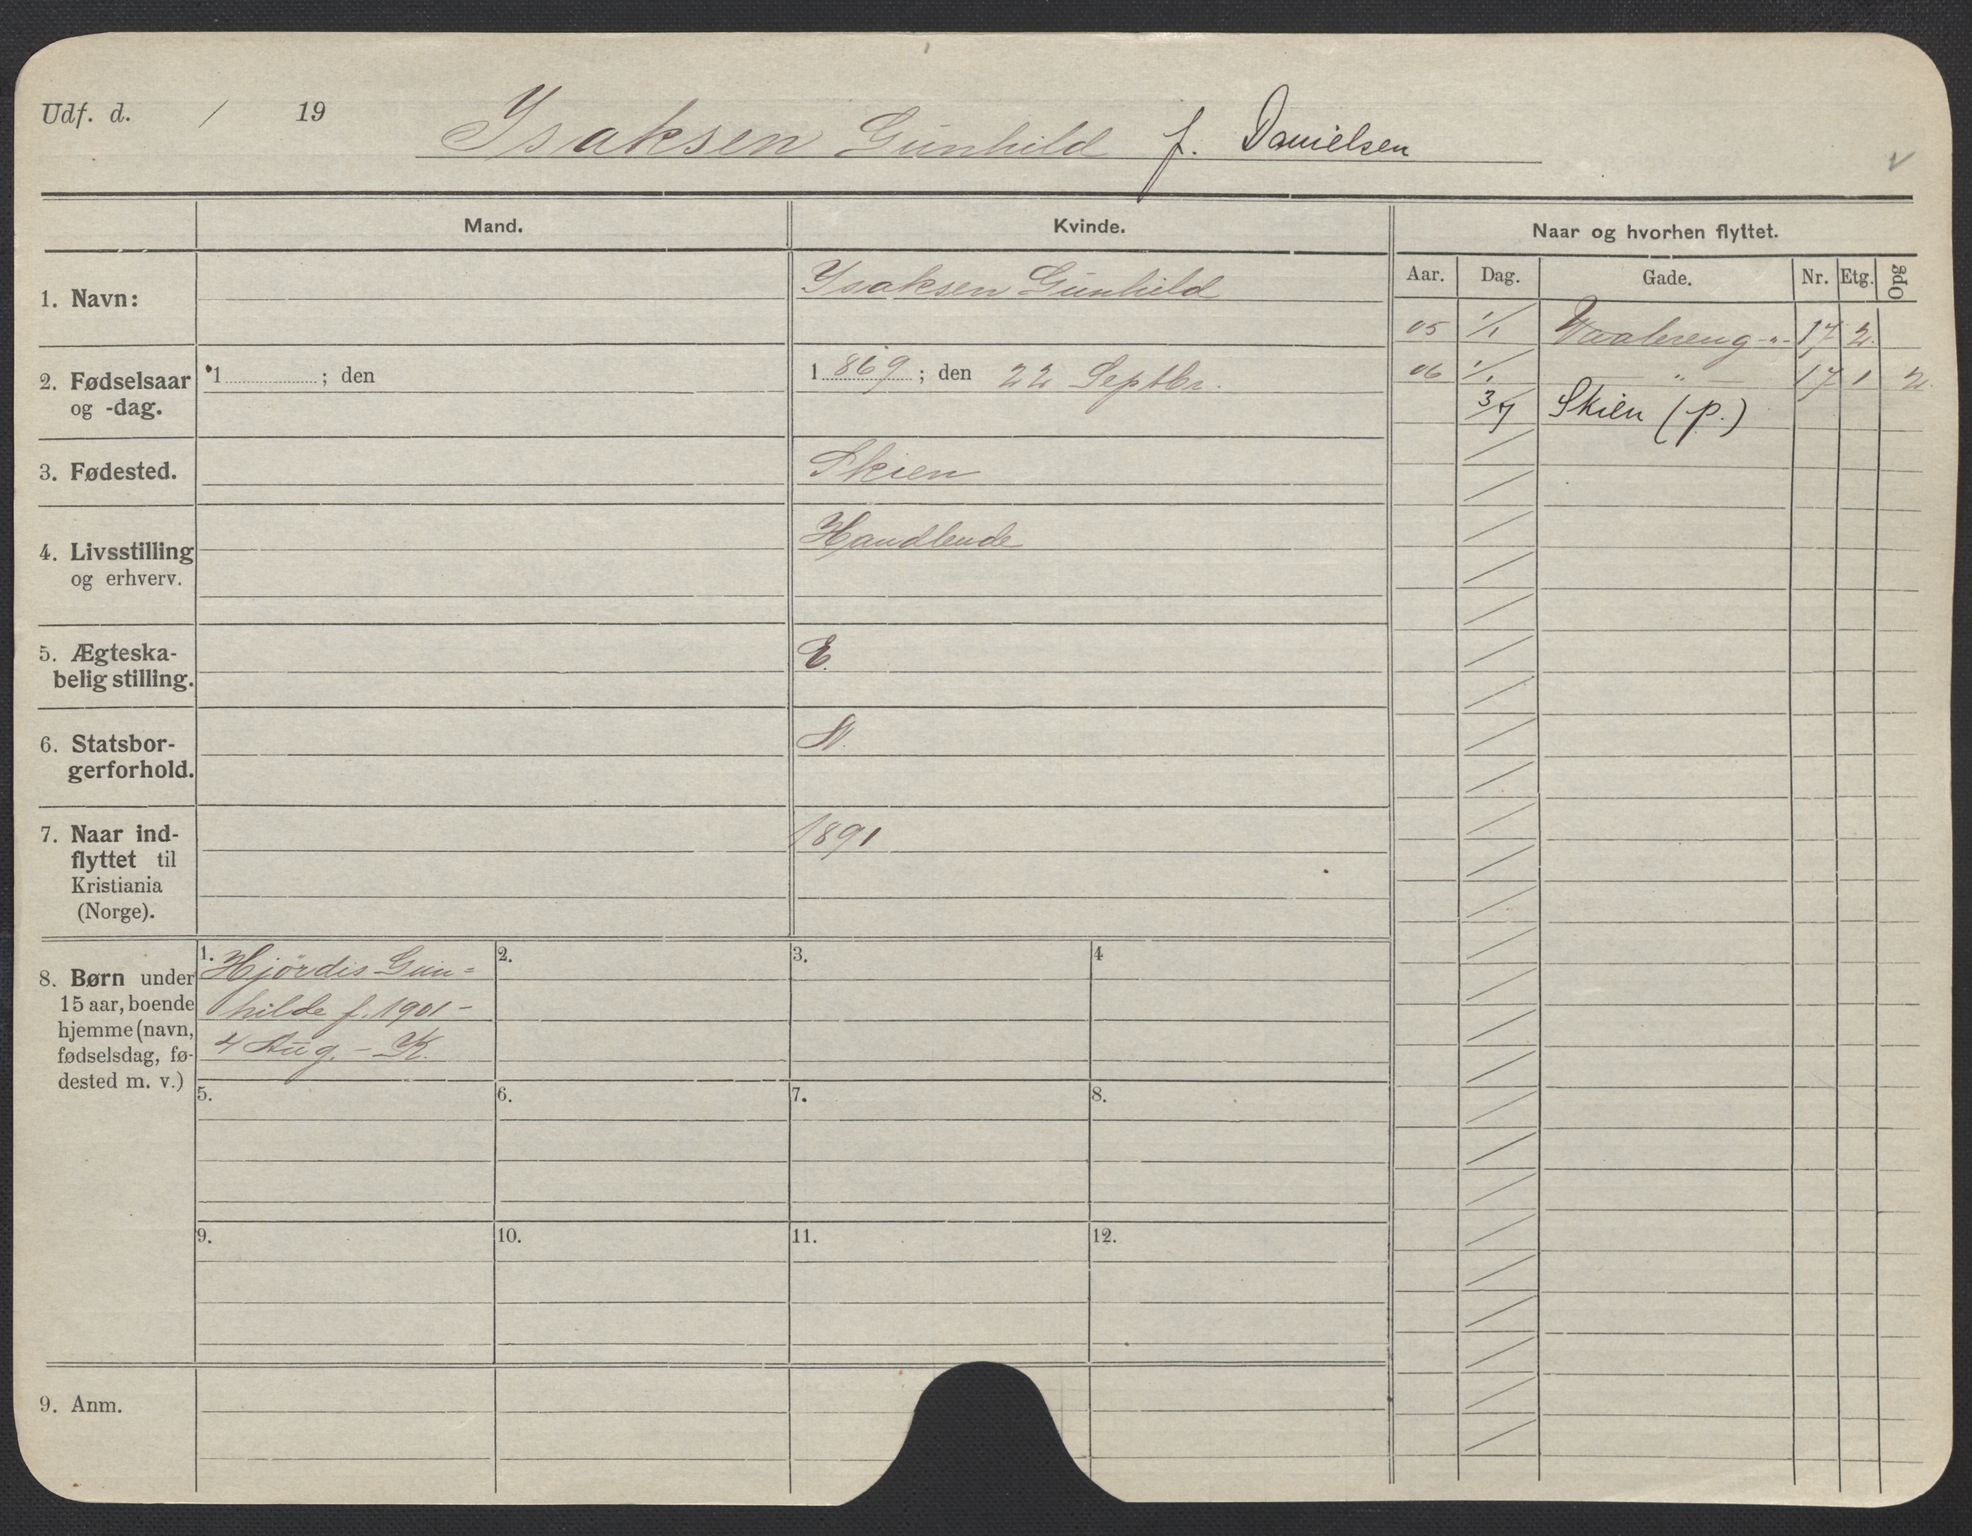 Udf. d. / 19
Isaksen Gunhild f. Danielsen
Mand.
Kvinde.
Naar og hvorhen flyttet.
Aar. Dag. Gade. Nr. Etg. Opg
1. Navn:
Isaksen Gunhild
05 1/1 Vaalereng -"- 17 2.
06 1/1 " — 17 1 2.
3/7 Skien (p.)
2. Fødselsaar
og -dag.
1 ; den
1 869 ; den 22 Septbr.
3. Fødested.
Skien
4. Livsstilling
og erhverv.
Handlende
5. Ægteska-
belig stilling.
E.
6. Statsbor-
gerforhold.
N.
7. Naar ind-
flyttet til
Kristiania
(Norge).
1891
8. Børn under
15 aar, boende
hjemme (navn,
fødselsdag, fø-
dested m. v.)
1. Hjördis Gun=
hilde f. 1901 -
4 Aug. - K.
2.
3.
4
5.
6.
7.
8.
9.
10.
11.
12.
9. Anm.